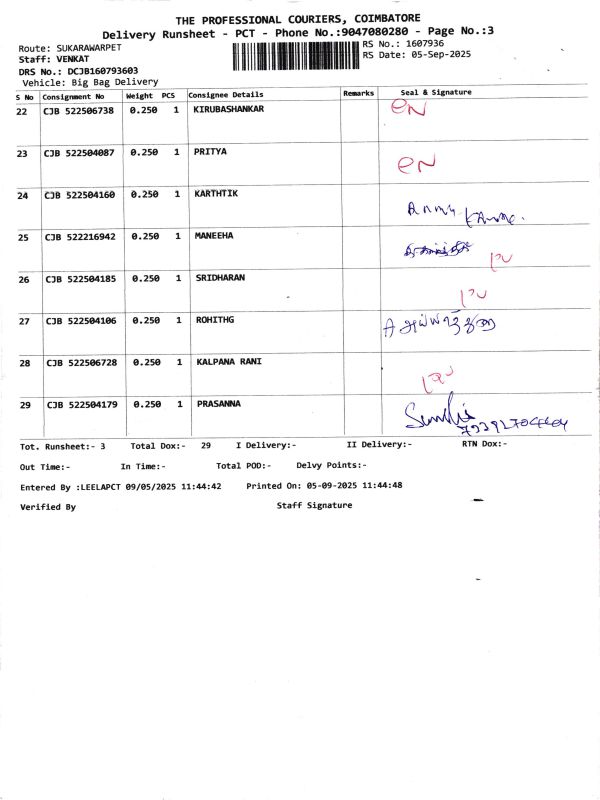 THE PROFESSIONAL COURIERS, COIMBATORE
Delivery Runsheet - PCT - Phone No.:9047080280 - Page No.:3
Route: SUKARAWARPET
RS No.: 1607936
Staff: VENKAT
RS Date: 05-Sep-2025
DRS No.: DCJB160793603
Vehicle: Big Bag Delivery
S No Consignment No Weight PCS Consignee Details Remarks Seal & Signature
22 CJB 522506738 0.250 1 KIRUBASHANKAR EN
23 CJB 522504087 0.250 1 PRITYA EN
24 CJB 522504160 0.250 1 KARTHTIK
25 CJB 522216942 0.250 1 MANEEHA
26 CJB 522504185 0.250 1 SRIDHARAN
27 CJB 522504106 0.250 1 ROHITHG
28 CJB 522506728 0.250 1 KALPANA RANI
29 CJB 522504179 0.250 1 PRASANNA
Tot. Runsheet:- 3 Total Dox:- 29 I Delivery:- II Delivery:- RTN Dox:-
Out Time:- In Time:- Total POD:- Delvy Points:-
Entered By :LEELAPCT 09/05/2025 11:44:42 Printed On: 05-09-2025 11:44:48
Verified By Staff Signature